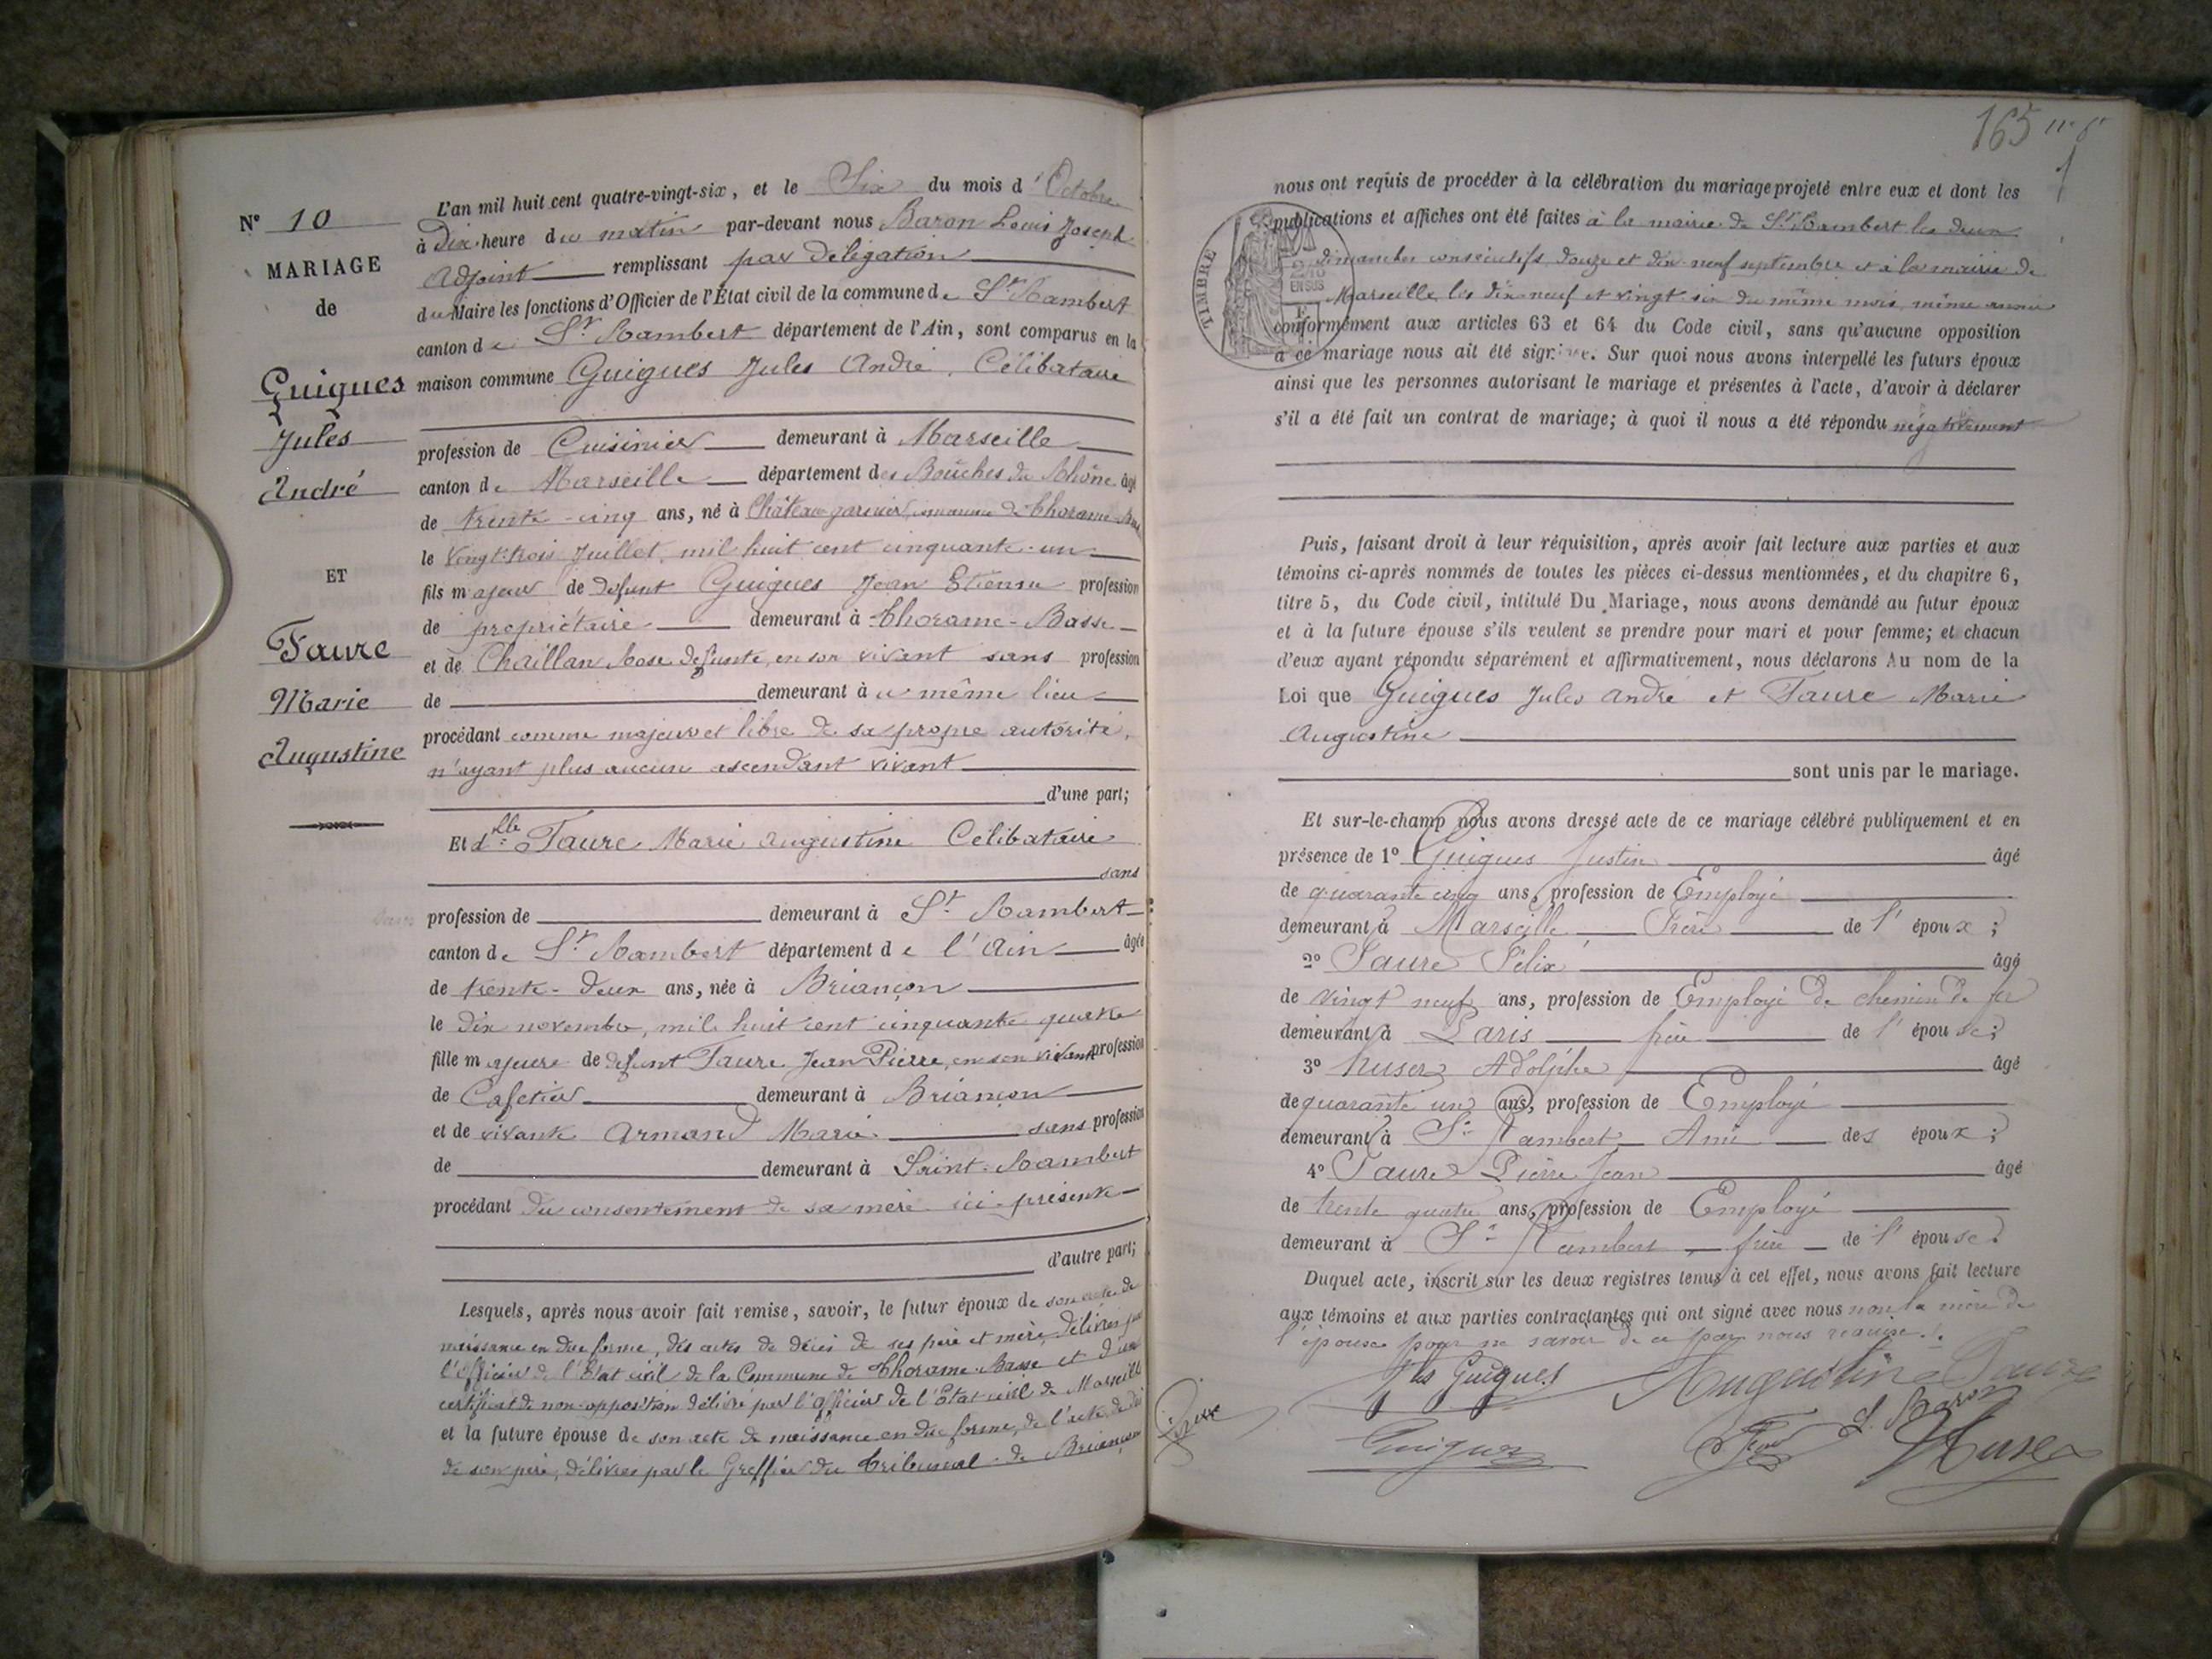 N° 10
MARIAGE
de
Guigues
Jules
André
ET
Faure
Marie
Augustine
L'an mil huit cent quatre-vingt-six, et le Six du mois d'Octobre
à Dix heure du matin par-devant nous Baron Louis Joseph
Adjoint remplissant par délégation
du Maire les fonctions d'Officier de l'État civil de la commune de St Rambert
canton de St Rambert département de l'Ain, sont comparus en la
maison commune Guigues Jules André, Célibataire
profession de Cuisinier demeurant à Marseille
canton de Marseille département des Bouches du Rhône âgé
de trente-cinq ans, né à Château-garnier, commune de Thorame-Basse
le Vingt-trois Juillet, mil huit cent cinquante-un
fils majeur de défunt Guigues Jean Etienne profession
de propriétaire demeurant à Thorame-Basse
et de Chaillan Rose défunte, en son vivant sans profession
de demeurant à ce même lieu
procédant comme majeur et libre de sa propre autorité,
n'ayant plus aucun ascendant vivant
d'une part;
Et dlle Faure Marie Augustine Célibataire
sans
profession de demeurant à St Rambert
canton de St Rambert département de l'Ain âgée
de trente-deux ans, née à Briançon
le dix novembre, mil huit cent cinquante quatre
fille majeure de défunt Faure Jean Pierre, en son vivant profession
de Cafetier demeurant à Briançon
et de vivante Armand Marie sans profession
de demeurant à Saint-Rambert
procédant du consentement de sa mère ici présente
d'autre part;
Lesquels, après nous avoir fait remise, savoir, le futur époux de son acte de
naissance en due forme, des actes de décès de ses père et mère, délivrés par
l'Officier de l'Etat civil de la Commune de Thorame-Basse et d'un
certificat de non-opposition délivré par l'officier de l'Etat civil de Marseille
et la future épouse de son acte de naissance en due forme, de l'acte de décès
de son père, délivrés par le Greffier du tribunal de Briançon
165
TIMBRE
2/10
EN SUS
nous ont requis de procéder à la célébration du mariage projeté entre eux et dont les
publications et affiches ont été faites à la mairie de St Rambert les deux
dimanches consécutifs, douze et dix-neuf septembre et à la mairie de
Marseille les dix-neuf et vingt six du même mois, même année
conformément aux articles 63 et 64 du Code civil, sans qu'aucune opposition
à ce mariage nous ait été signifiée. Sur quoi nous avons interpellé les futurs époux
ainsi que les personnes autorisant le mariage et présentes à l'acte, d'avoir à déclarer
s'il a été fait un contrat de mariage; à quoi il nous a été répondu négativement
Puis, faisant droit à leur réquisition, après avoir fait lecture aux parties et aux
témoins ci-après nommés de toutes les pièces ci-dessus mentionnées, et du chapitre 6,
titre 5, du Code civil, intitulé Du Mariage, nous avons demandé au futur époux
et à la future épouse s'ils veulent se prendre pour mari et pour femme; et chacun
d'eux ayant répondu séparément et affirmativement, nous déclarons Au nom de la
Loi que Guigues Jules André et Faure Marie
Augustine
sont unis par le mariage.
Et sur-le-champ nous avons dressé acte de ce mariage célébré publiquement et en
présence de 1° Guigues Justin âgé
de quarante cinq ans, profession de Employé
demeurant à Marseille Frère de l'époux;
2° Faure Félix âgé
de vingt neuf ans, profession de Employé de chemin de fer
demeurant à Paris frère de l'épouse;
3° Huser Adolphe âgé
de quarante un ans, profession de Employé
demeurant à St Rambert Ami des époux;
4° Faure Pierre Jean âgé
de trente quatre ans, profession de Employé
demeurant à St Rambert frère de l'épouse.
Duquel acte, inscrit sur les deux registres tenus à cet effet, nous avons fait lecture
aux témoins et aux parties contractantes qui ont signé avec nous non la mère de
l'épouse pour ne savoir de ce par nous requise.
Jles Guigues Augustine Faure
L. Baron
Faure Guigues Huser